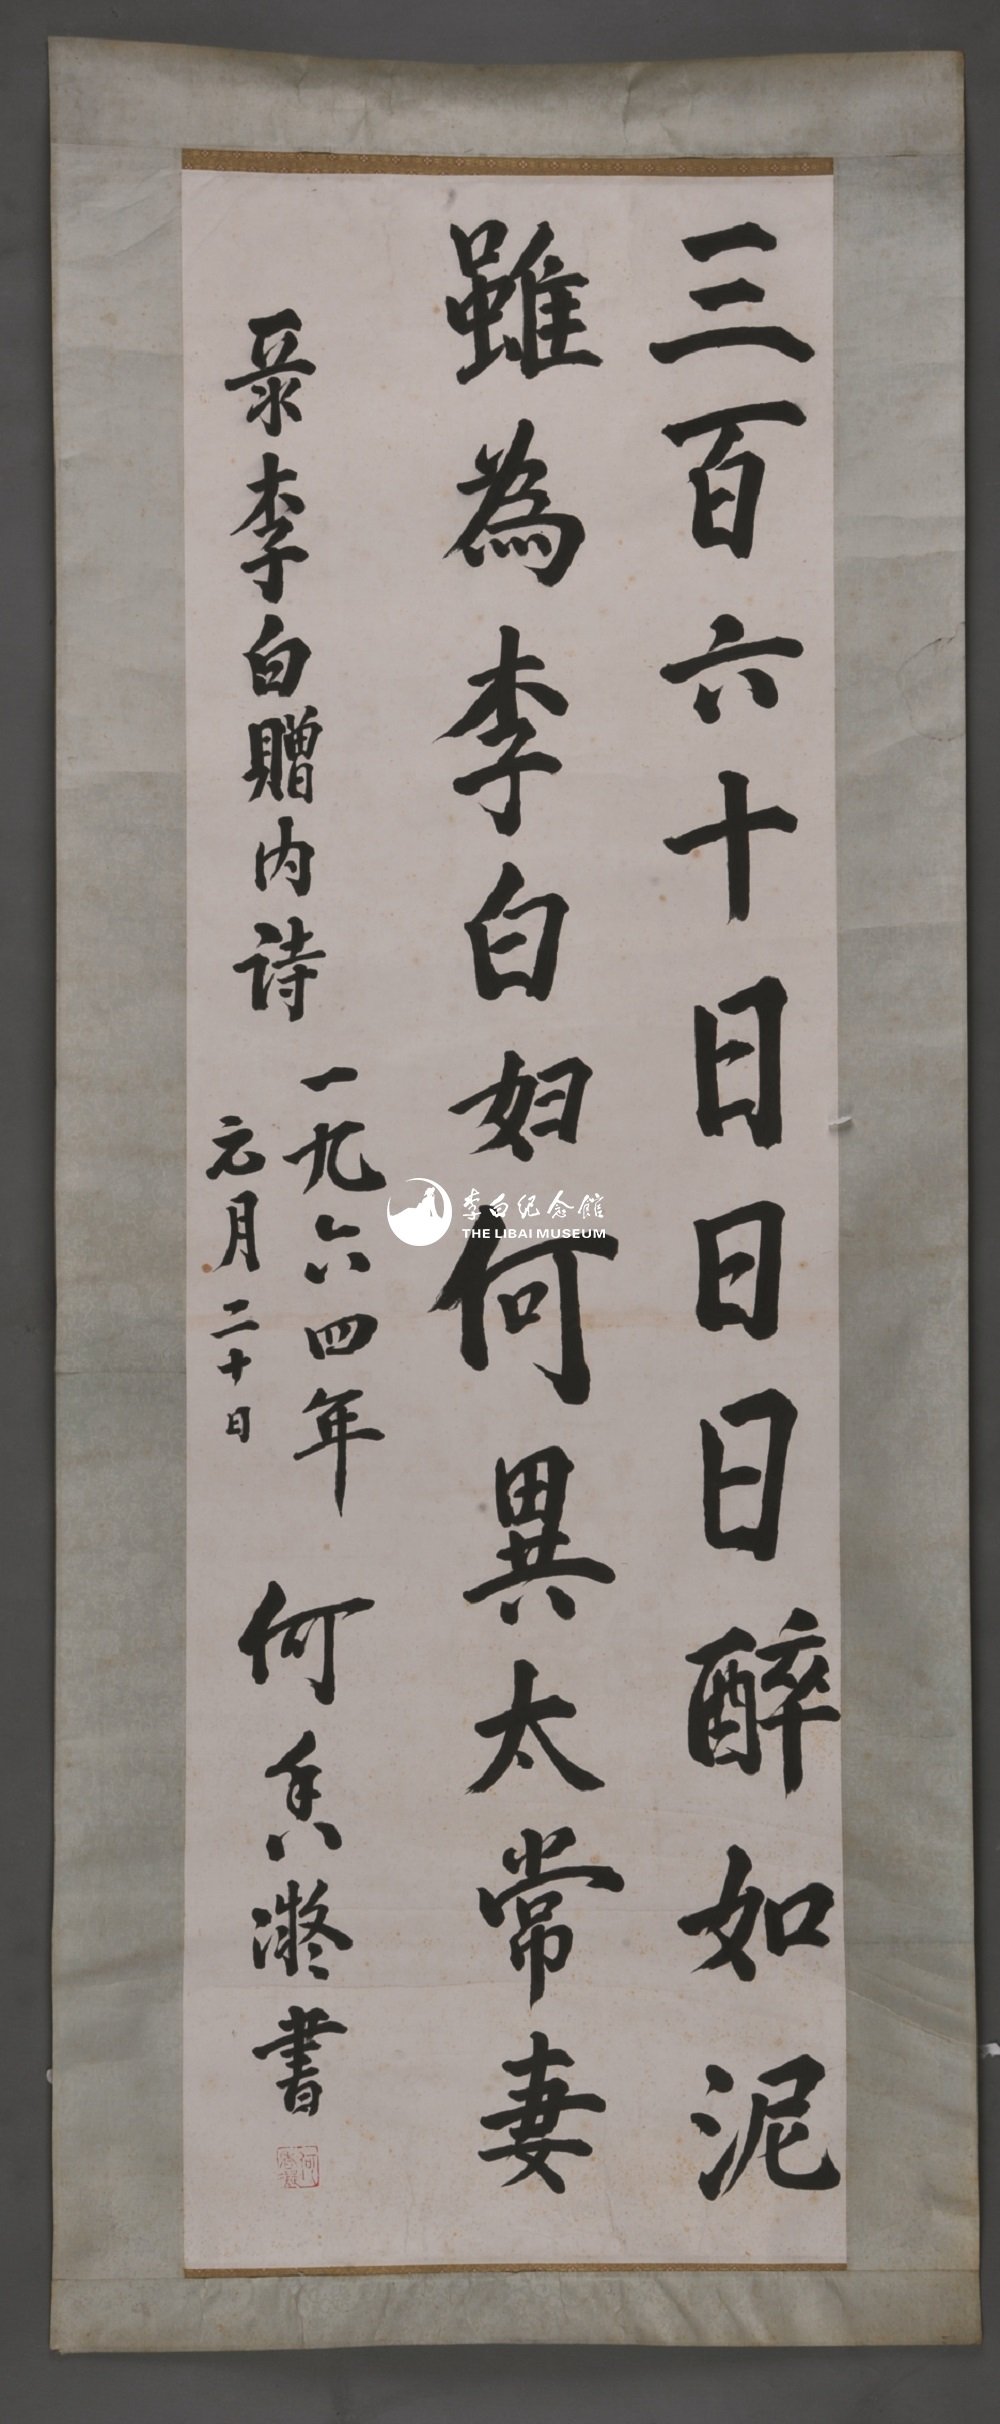 三百六十日日日醉如泥
雖為李白妇何異太常妻
录李白贈内诗
一九六四年
元月二十日
何香凝書
李白纪念館
THE LIBAI MUSEUM